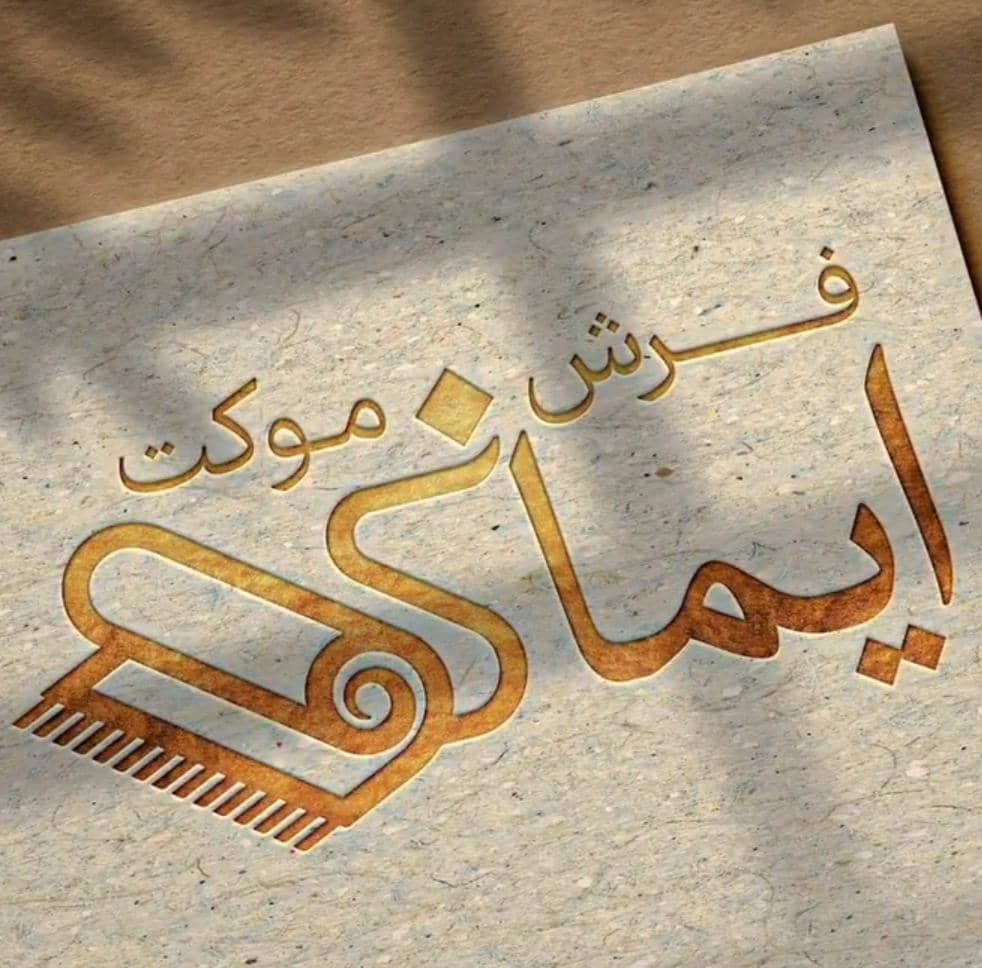 فرش موکت
ایمان